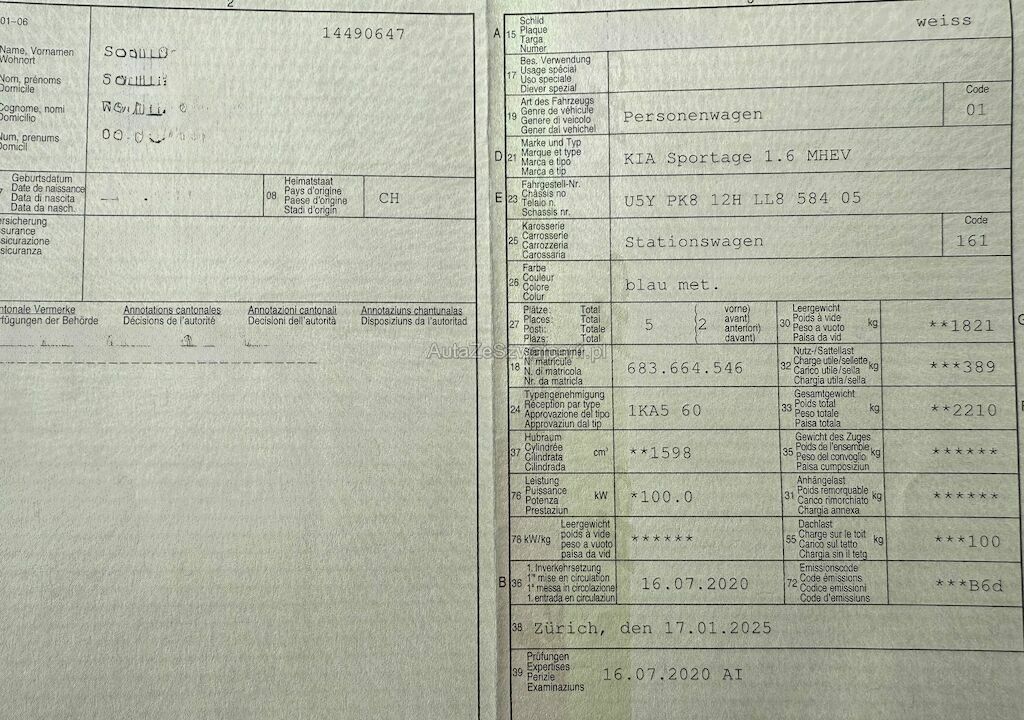 2
01-06
14490647
Name, Vornamen
Wohnort
Nom, prénoms
Domicile
Cognome, nomi
Domicilio
Num, prenums
Domicil
Geburtsdatum
Date de naissance
Data di nascita
Data da nasch.
08
Heimatstaat
Pays d'origine
Paese d'origine
Stadi d'origin
CH
rsicherung
surance
sicurazione
sicuranza
ntonale Vermerke
rfügungen der Behörde
Annotations cantonales
Décisions de l'autorité
Annotazioni cantonali
Decisioni dell'autorità
Annotaziuns chantunalas
Disposiziuns da l'autoritad
AutazeSzwajcarii.pl
A 15
Schild
Plaque
Targa
Numer
weiss
17
Bes. Verwendung
Usage spécial
Uso speciale
Diever spezial
19
Art des Fahrzeugs
Genre de véhicule
Genere di veicolo
Gener dal vehichel
Personenwagen
Code
01
D 21
Marke und Typ
Marque et type
Marca e tipo
Marca e tip
KIA Sportage 1.6 MHEV
E 23
Fahrgestell-Nr.
Châssis no
Telaio n.
Schassis nr.
U5Y PK8 12H LL8 584 05
25
Karosserie
Carrosserie
Carrozzeria
Carossaria
Stationswagen
Code
161
26
Farbe
Couleur
Colore
Colur
blau met.
27
Plätze: Total
Places: Total
Posti: Totale
Plazs: Total
5
(2
vorne)
avant)
anteriori)
davant)
30
Leergewicht
Poids à vide
Peso a vuoto
Paisa da vid
kg
**1821
18
Stammnummer
N° matricule
N. di matricola
Nr. da matricla
683.664.546
32
Nutz-/Sattellast
Charge utile/sellette
Carico utile/sella
Chargia utila/sella
kg
***389
24
Typengenehmigung
Réception par type
Approvazione del tipo
Approvaziun dal tip
1KA5 60
33
Gesamtgewicht
Poids total
Peso totale
Paisa totala
kg
**2210
37
Hubraum
Cylindrée
Cilindrata
Cilindrada
cm³
**1598
35
Gewicht des Zuges
Poids de l'ensemble
Peso del convoglio
Paisa cumposiziun
kg
******
76
Leistung
Puissance
Potenza
Prestaziun
kW
*100.0
31
Anhängelast
Poids remorquable
Carico rimorchiato
Chargia annexa
kg
******
78 kW/kg
Leergewicht
poids à vide
peso a vuoto
paisa da vid
******
55
Dachlast
Charge sur le toit
Carico sul tetto
Chargia sin il tetg
kg
***100
B 36
1. Inverkehrsetzung
1re mise en circulation
1a messa in circolazione
1. entrada en circulaziun
16.07.2020
72
Emissionscode
Code émissions
Codice emissioni
Code d'emissiuns
***B6d
38
Zürich, den 17.01.2025
39
Prüfungen
Expertises
Perizie
Examinaziuns
16.07.2020 AI